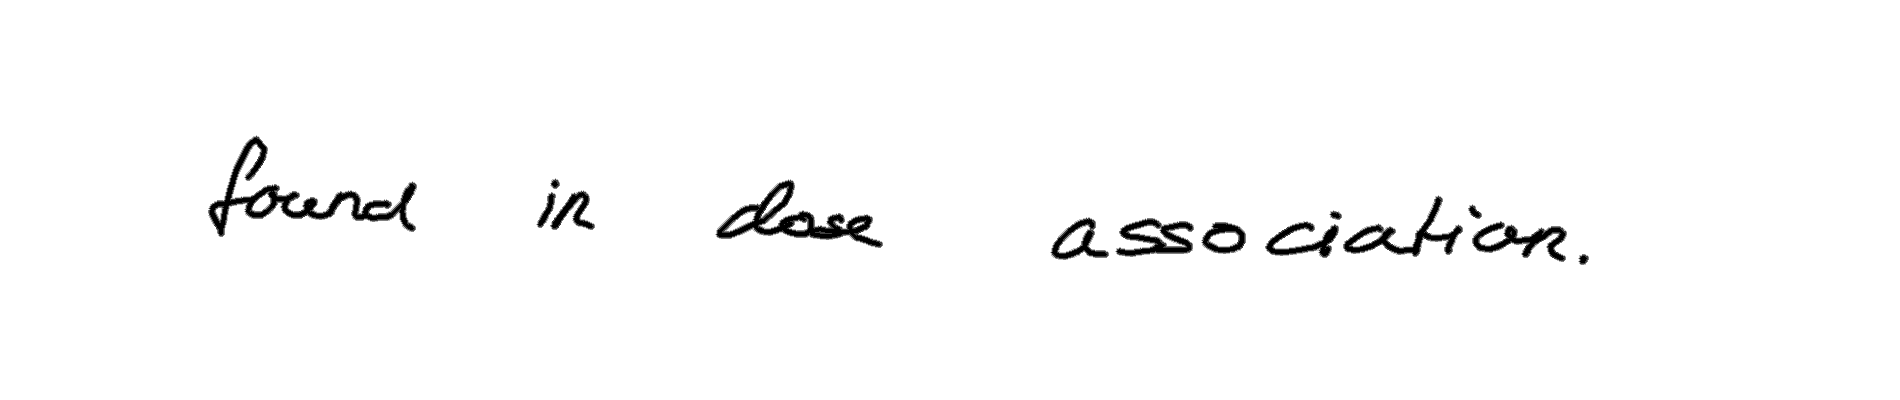 found in close association.